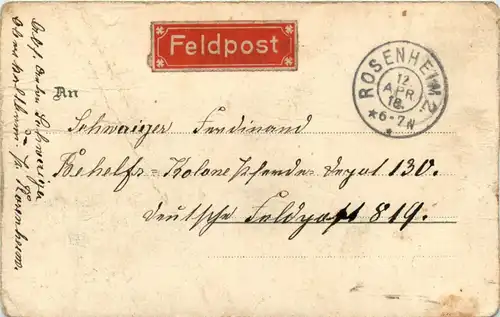 Feldpost
ROSENHEIM 2
12
APR
18
*6-7N
*
An
Schwaiger Ferdinand
Behelfs-Kolone Pferde-Depat 130.
deutsche Feldpost 819.
Schwaiger
Rosenheim